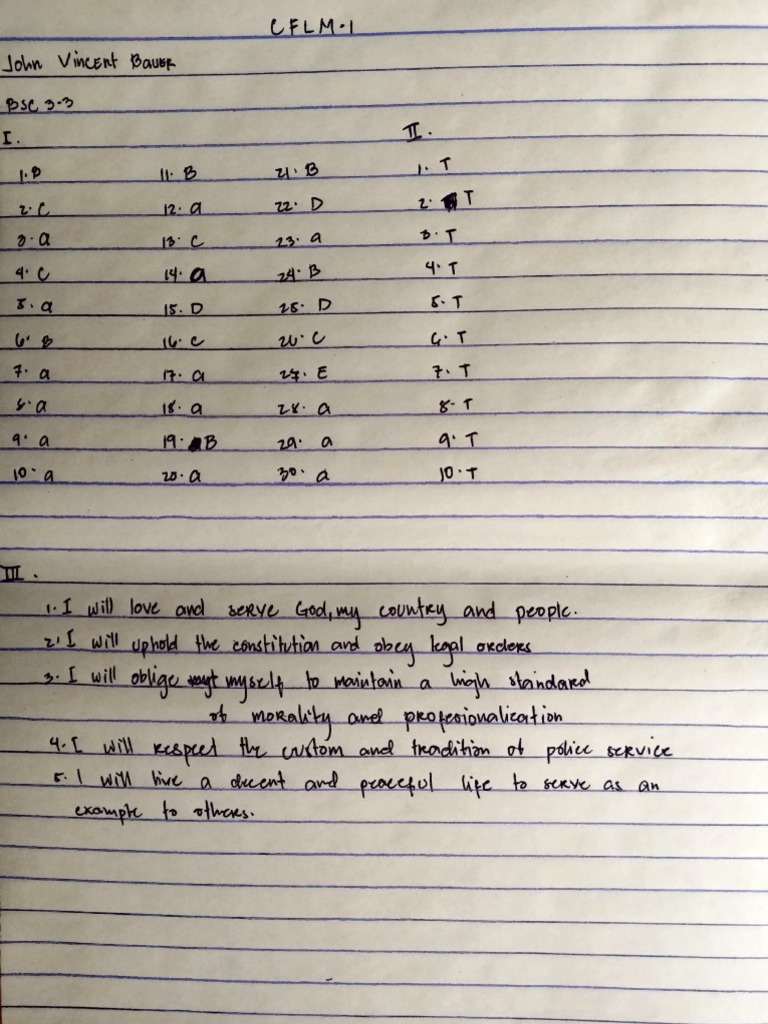 CFLM-1
John Vincent Bauer
BSC 3-3
I. II.
1. B 11. B 21. B 1. T
2. C 12. a 22. D 2. T
3. a 13. C 23. a 3. T
4. C 14. a 24. B 4. T
5. a 15. D 25. D 5. T
6. B 16. C 26. C 6. T
7. a 17. a 27. E 7. T
8. a 18. a 28. a 8. T
9. a 19. B 29. a 9. T
10. a 20. a 30. a 10. T
III.
1. I will love and serve God, my country and people.
2. I will uphold the constitution and obey legal orders
3. I will oblige myself to maintain a high standard
of morality and profesionalization
4. I will respect the custom and tradition of police service
5. I will live a decent and peaceful life to serve as an
example to others.